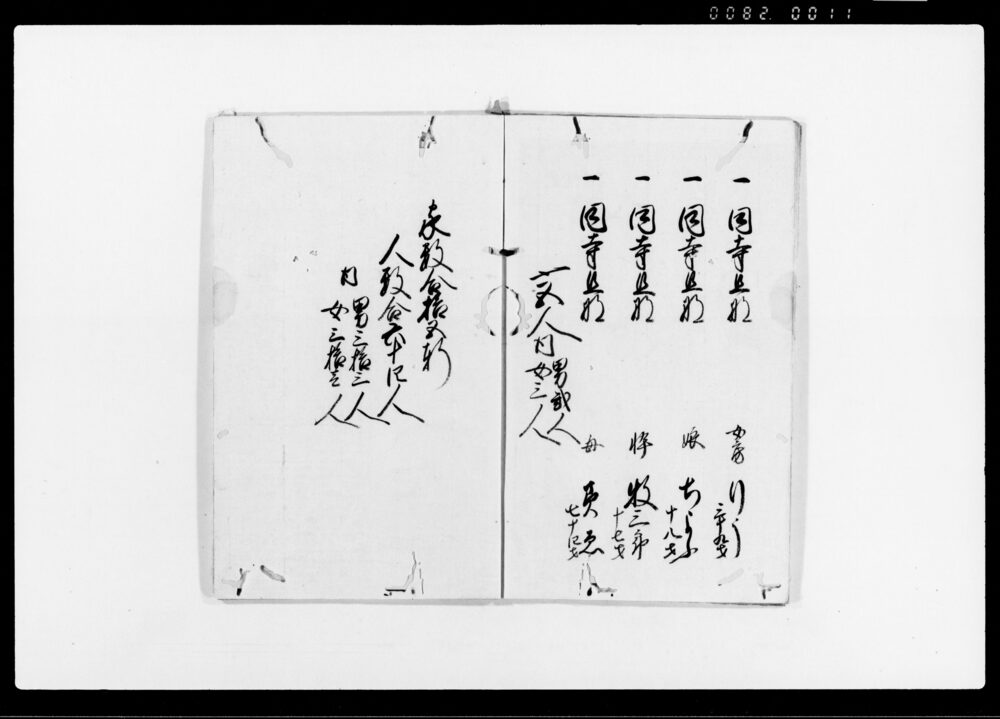 0082 0011
一同寺旦那 女房 りう 三十九才
一同寺旦那 娘 ちよふ 十八才
一同寺旦那 悴 牧三郎 十七才
一同寺旦那 母 七十四才
〆五人内 男弐人
女三人
家数合拾五軒
人数合六十四人
内 男三拾三人
女三拾壱人